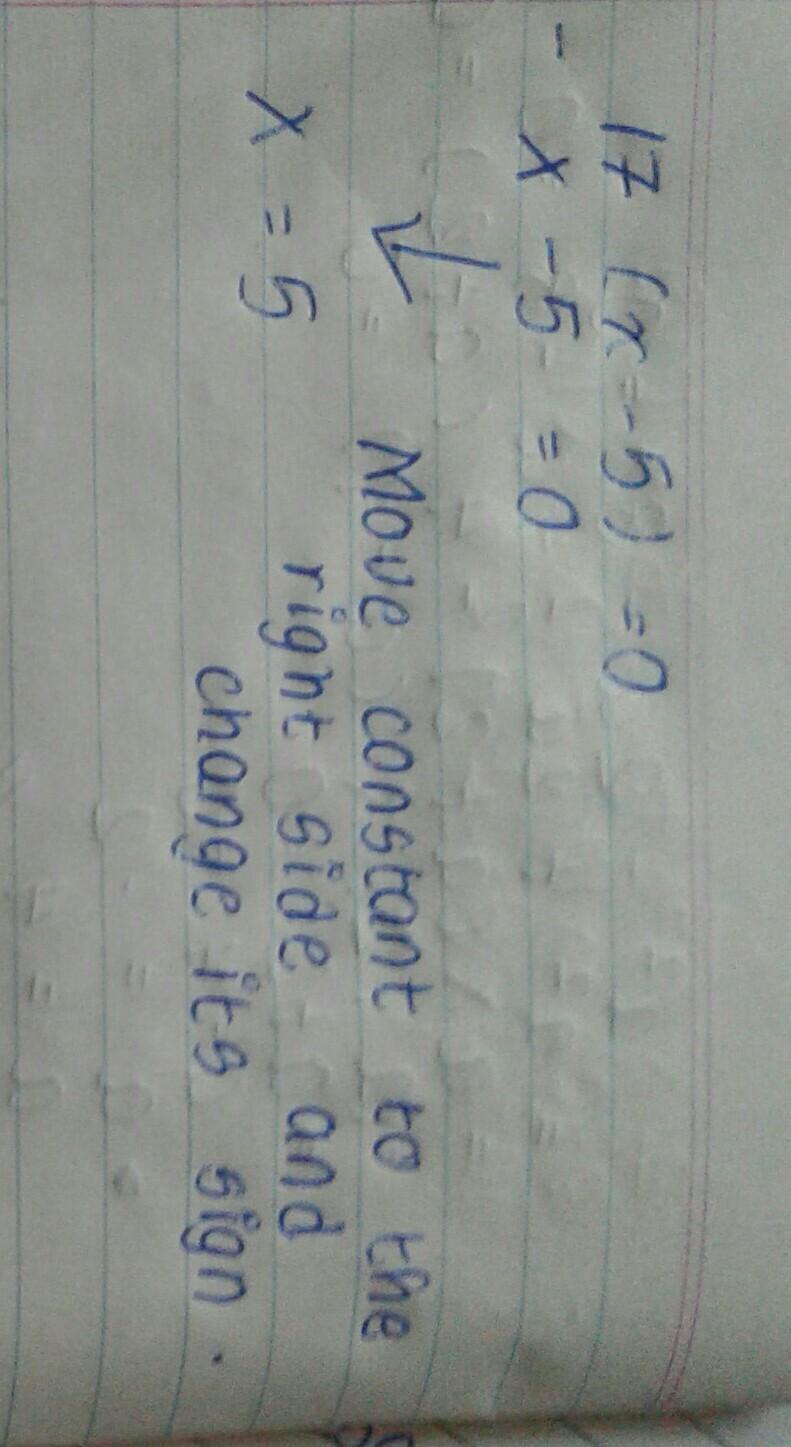 17 (x-5) = 0
- x - 5 = 0
↓ Move constant to the
x = 5 right side and
change its sign.